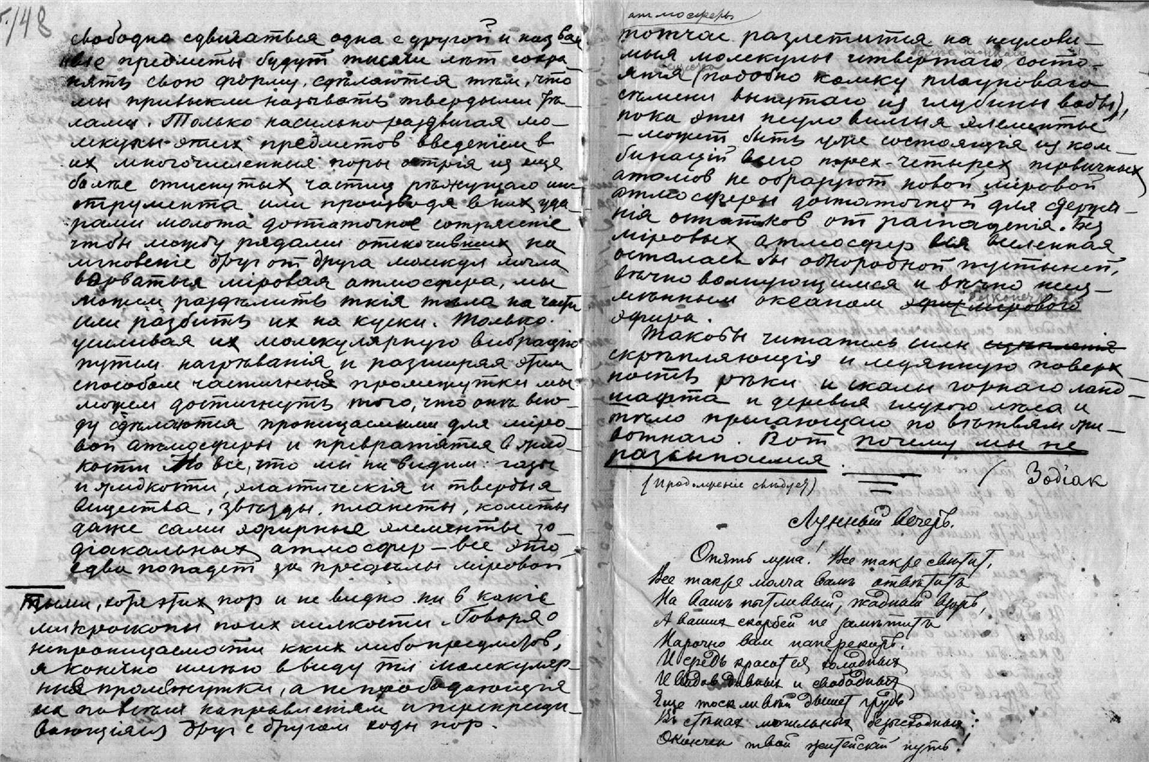 148
свободна сдвигаться одна с другой и назван
ные предметы будут тысячи лѣт сохра-
нять свою форму, сдѣлаются тѣм, что
мы привыкли называть твердыми тѣ-
лами. Только насильно раздвигая мо-
лекулы этих предметов введеніем в
их многочисленные поры острія из еще
болѣе стиснутых частиц рѣжущаго ин-
струмента или производя в них уда-
рами молота достаточное сотрясение
чтобы между рядами отскочивших на
мгновение друг от друга молекул могла
ворваться мировая атмосфера, мы
можем раздѣлить ткія тѣла на части
или разбить их на куски. Только
усиливая их молекулярную вибрацію
путем нагрѣванія и расширяя этим
способом частичные промежутки мы
можем достигнуть того, что онѣ всю-
ду сдѣлаются проницаемыми для міро-
вой атмосферы и превратятся в жид-
кости. Но все, что мы ни видим: газы
и жидкости, эластическія и твердыя
вещества, звѣзды, планеты, кометы
даже сами эфирные элементы зо-
діакальных атмосфер — все это,
едва попадет за предѣлы міровой
тыми, хотя этих пор и не видно ни в какіе
микроскопы по их мелкости. Говоря о
непроницаемости кких либо предметов,
я конечно имѣю в виду эти молекуляр-
ные промежутки, а не прободающія
их по всѣм направлетям и перекрещи-
вающіяся друг с другом ходы пор.
атмосферы
тотчас разлетится на неулови-
мыя молекулы четвертаго состо-
янія (подобно комку плауноваго
сѣмени вынутаго из глубины воды),
пока эти неуловимыя элементы
— может быть уже состоящія из ком-
бинацій всего трех-четырех первичных
атомов не образуют новой міровой
атмосферы достаточной для сдержа-
нія остатков от распаденія. Без
міровых атмосфер вся вселенная
осталась бы однородной пустыней,
вѣчно волнующимся и вѣчно неиз-
мѣнным океаном эфир мирового
эфира.
Таковы читатель силы сцепления
скрѣпляющія и ледянную поверх-
ность рѣки и скалы горнаго ланд-
шафта и деревья глухого лѣса и
тѣло прыгающаго по вѣтвям жи-
вотнаго. Вот почему мы не
разсыпаемся.
Зодіак
(Продолжение слѣдует)
Лунный вечеръ.
Опять луна! Все также свѣтит,
Все также молча вамъ отвѣтитъ
На вашъ пытливый, жадный взоръ,
А ваших скорбей не замѣтитъ
Нарочно вам наперекоръ.
И средь красотъ холодных
И видов дивных и свободных
Еще тоскливѣй дышет грудь
Въ стѣнах могильных безысходных:
Окончен твой житейскій путь!